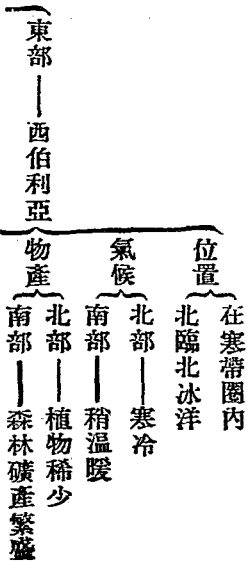 東部——西伯利亞
位置
在寒帶圈內
北臨北冰洋
氣候
北部——寒冷
南部——稍溫暖
物產
北部——植物稀少
南部——森林礦產繁盛